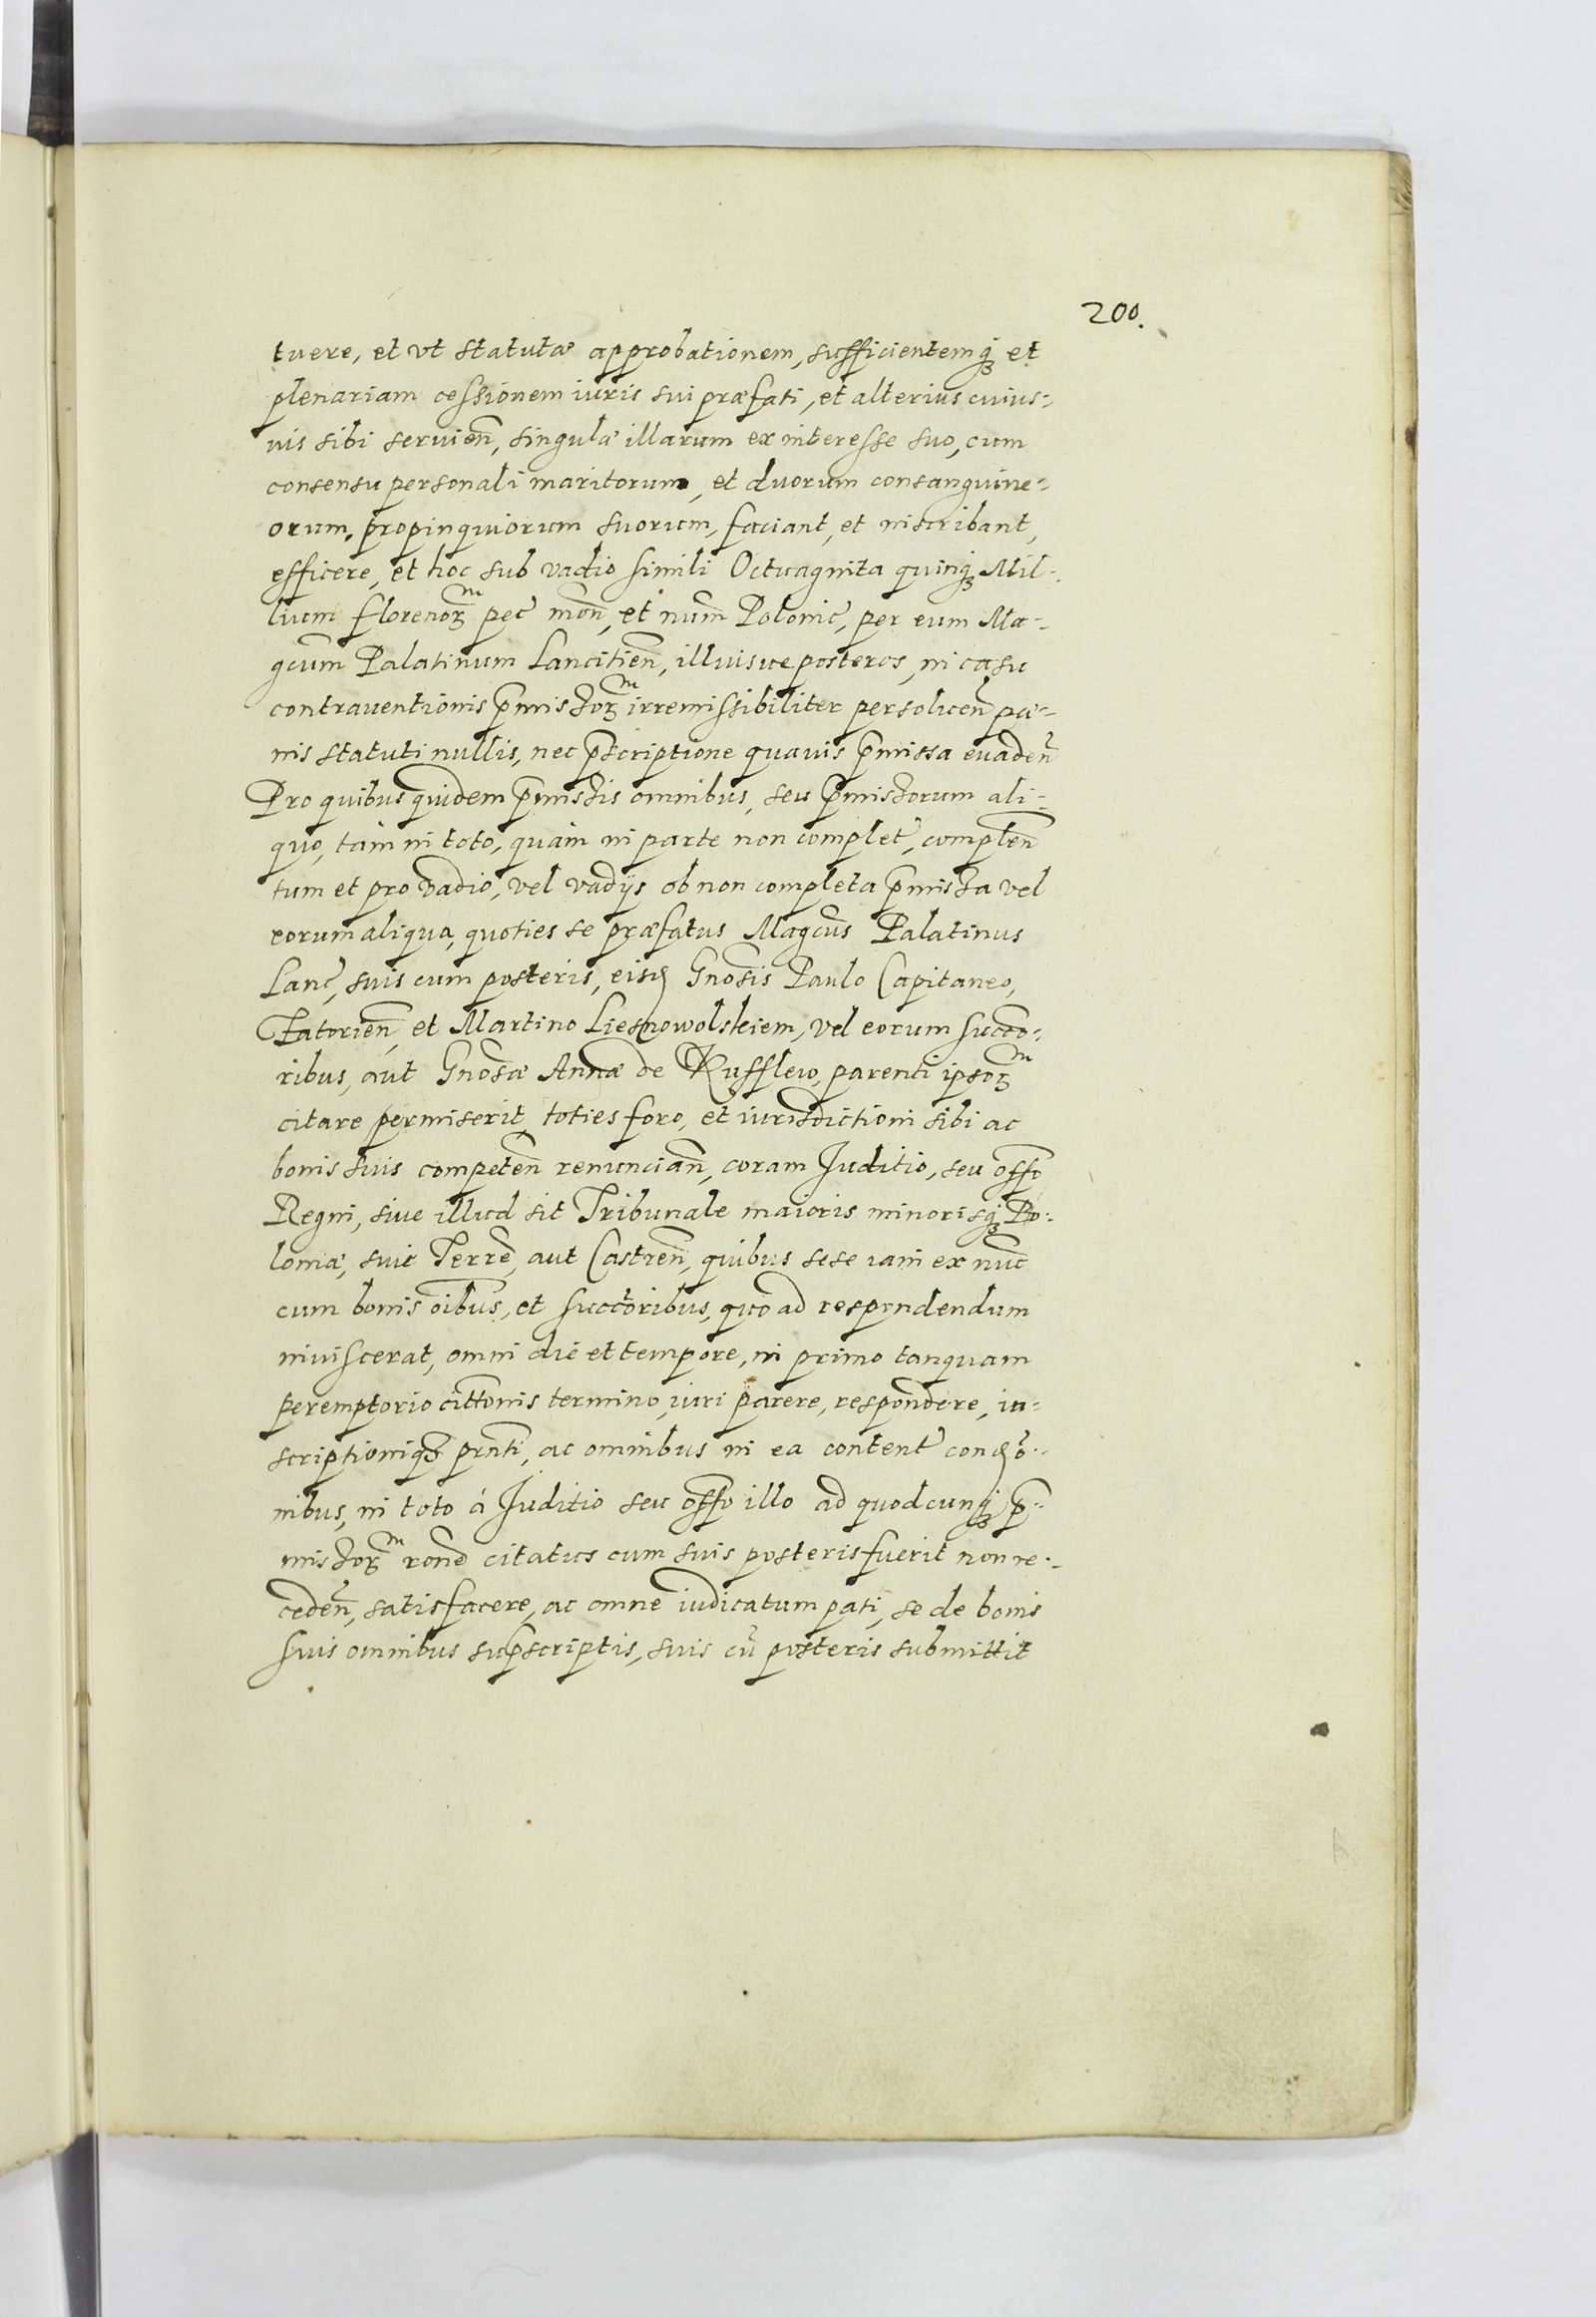 200.
tuere, et vt statutæ approbationem, sufficientemq₃ et
plenariam cessionem iuris sui præfati, et alterius cuius=
uis sibi seruien̄, singulæ illarum ex interesse suo, cum
consensu personali maritorum, et duorum consanguine=
orum, propinquiorum suorum, faciant, et inscribant,
efficere, et hoc sub vadio simili Octuaginta quinq₃ Mil=
lium florenoꝝͫ pec̄ mon̄, et num̄ Polonic̄, per eum Ma=
gcum̄ Palatinum Lancitien̄, illiusue posteros, in casu
contrauentionis p̄missoꝝͫ irremissibiliter persoluen̄ pæ=
nis statuti nullis, nec p̄scriptione quauis p̄missa euaden̄
Pro quibus quidem p̄missis omnibus, seu p̄missorum ali=
quo, tam in toto, quàm in parte non complet̄, complen̄
tum et pro vadio, vel vadijs ob non completa p̄missa vel
eorum aliqua, quoties se præfatus Magcus̄ Palatinus
Lanc̄, suis cum posteris, eisd Gnosis̄ Paulo Capitaneo,
et Martino Liesnowolskiem, vel eorum succo=
ribus, aut Gnosǣ Annæ de Kufflew, parenti ipsoꝝͫ
citare permiserit, toties foro, et iurisdictioni sibi ac
bonis suis competen̄ renuncian̄, coram Iuditio, seu offo̅
Regni, siue illud sit Tribunale maioris minorisq₃ Po=
loniæ, siue Terre̅, aut Castren̄, quibus sese iam ex nuc̄
cum bonis oib̄us, et succtoribus, quo ad respondendum
inuiscerat, omni die et tempore, in primo tanquam
peremptorio cittonis̄ termino, iuri parere, respondere, in=
scriptioniq₃ prnti̅, ac omnibus in ea content̄ condo̅=
nibus, in toto à Iuditio seu offo̅ illo ad quodcunq₃ p̄=
missoꝝͫ rone̅ citatus cum suis posteris fuerit non re=
ceden̄, satisfacere, ac omne iudicatum pati, se de bonis
suis omnibus sup̄scriptis, suis cū posteris submittit